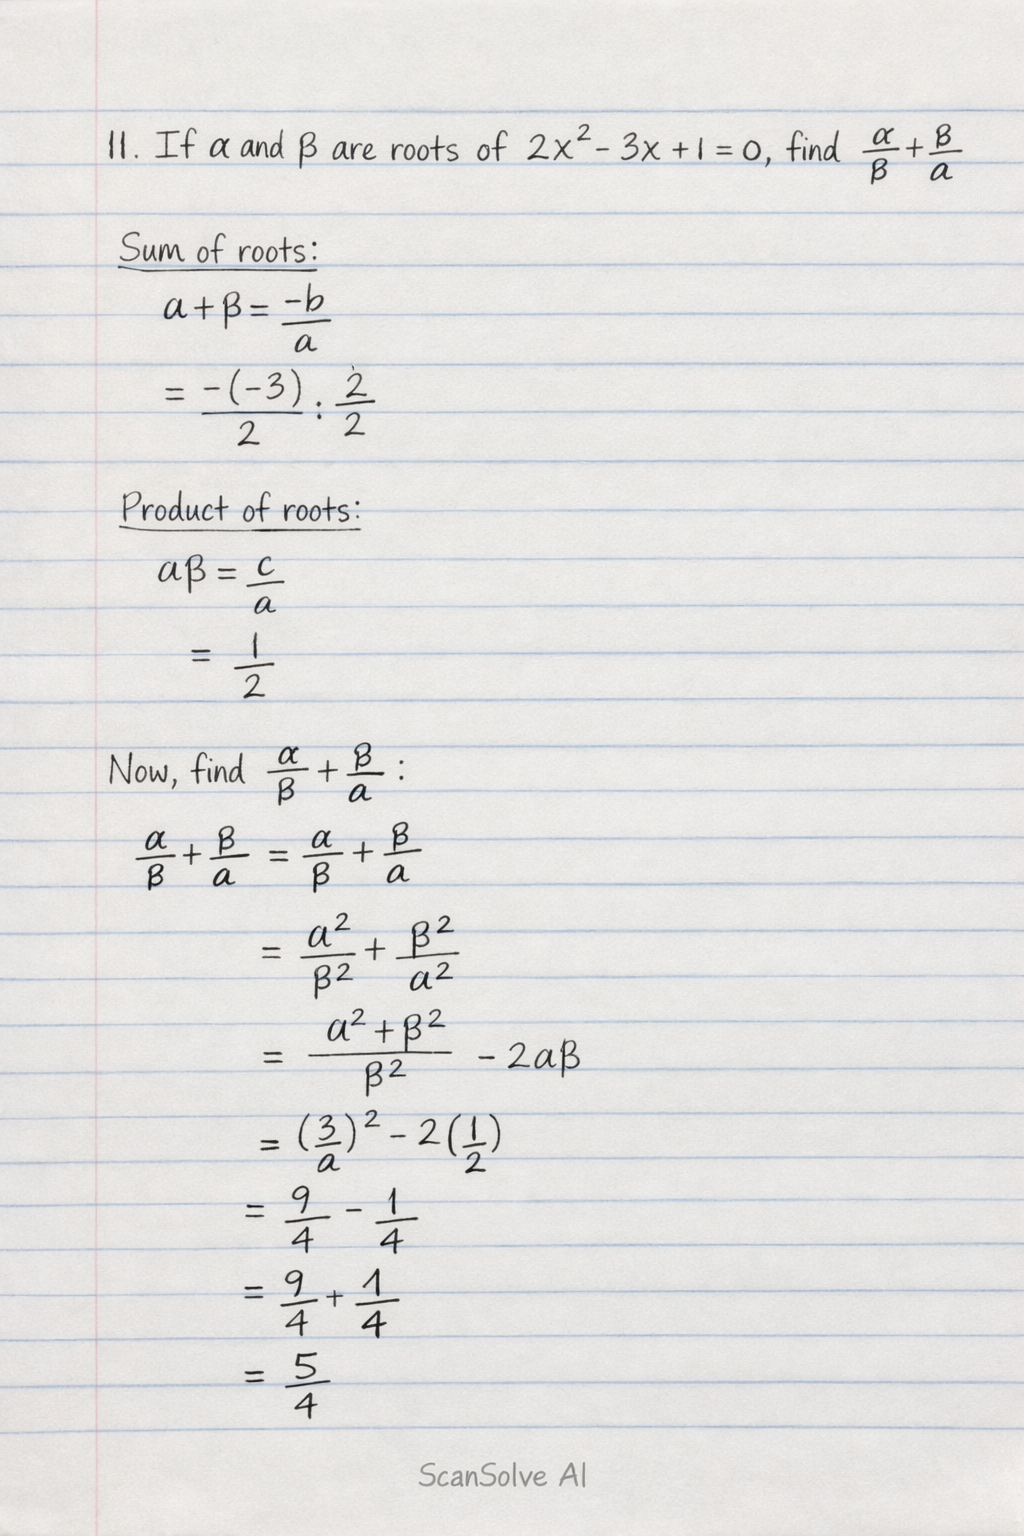 11. If α and β are roots of 2x² - 3x + 1 = 0, find α/β + β/a
Sum of roots:
a + β = -b/a
= -(-3)/2 : 2/2
Product of roots:
aβ = c/a
= 1/2
Now, find α/β + β/a :
α/β + β/a = α/β + β/a
= a²/β² + β²/a²
= (a² + β²)/β² - 2aβ
= (3/a)² - 2(1/2)
= 9/4 - 1/4
= 9/4 + 1/4
= 5/4
ScanSolve AI